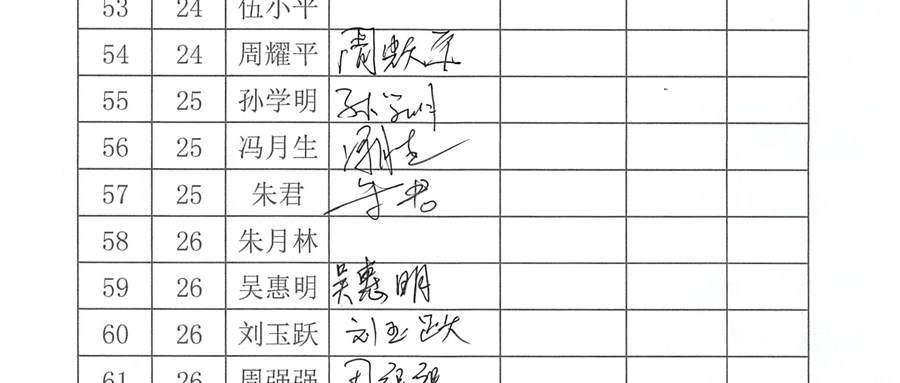 53 24 伍小平
54 24 周耀平 周耀平
55 25 孙学明 孙学明
56 25 冯月生 冯月生
57 25 朱君 朱君
58 26 朱月林
59 26 吴惠明 吴惠明
60 26 刘玉跃 刘玉跃
61 26 周强强 周强强